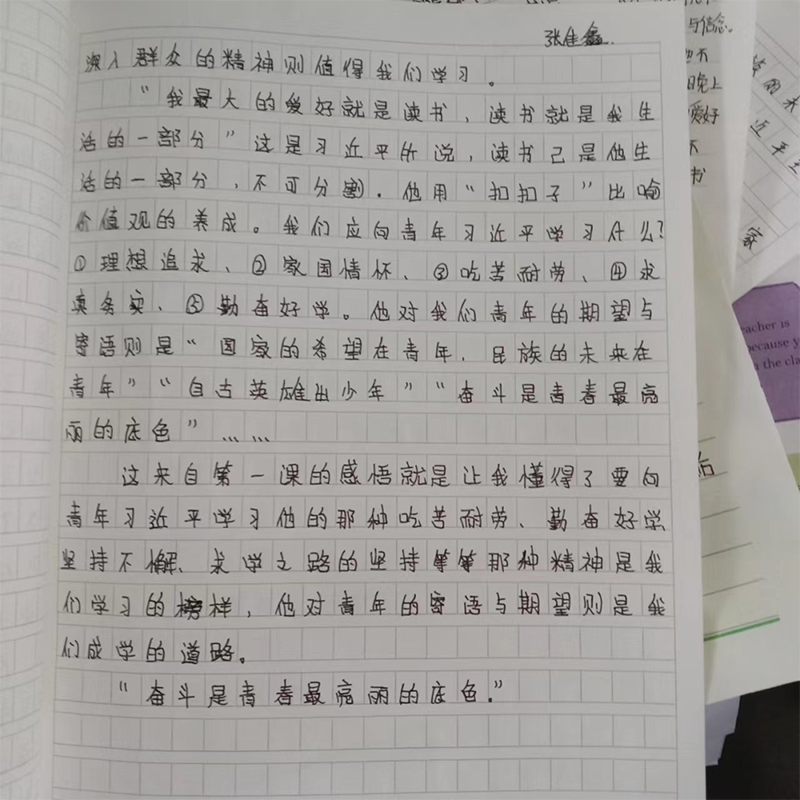 张佳鑫
深入群众的精神则值得我们学习。
“我最大的爱好就是读书，读书就是我生
活的一部分”这是习近平所说，读书已是他生
活的一部分，不可分割．他用“扣扣子”比喻
价值观的养成。我们应向青年习近平学习什么？
①理想追求、②家国情怀、③吃苦耐劳、④求
真务实、⑤勤奋好学。他对我们青年的期望与
寄语则是“国家的希望在青年，民族的未来在
青年”“自古英雄出少年”“奋斗是青春最亮
丽的底色”……
这来自第一课的感悟就是让我懂得了要向
青年习近平学习他的那种吃苦耐劳、勤奋好学
坚持不懈、求学之路的坚持等等那种精神是我
们学习的榜样，他对青年的寄语与期望则是我
们成学的道路。
“奋斗是青春最亮丽的底色．”
与信念。
晚上
爱好
书
近平
家
eacher is
because y
the cla